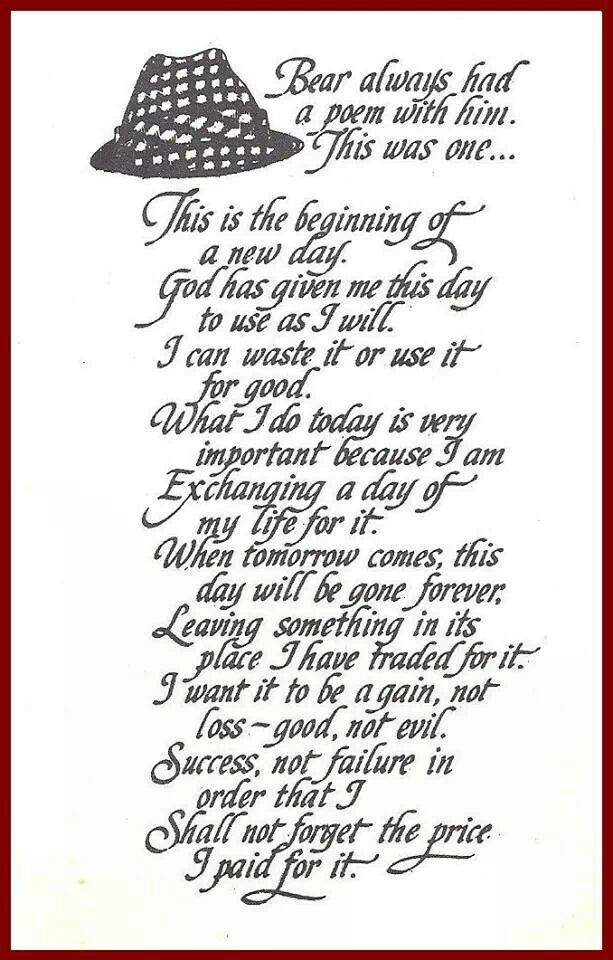 Bear always had
a poem with him.
This was one...
This is the beginning of
a new day.
God has given me this day
to use as I will.
I can waste it or use it
for good.
What I do today is very
important because I am
Exchanging a day of
my life for it.
When tomorrow comes, this
day will be gone forever,
Leaving something in its
place I have traded for it.
I want it to be a gain, not
loss-good, not evil.
Success, not failure in
order that I
Shall not forget the price
I paid for it.